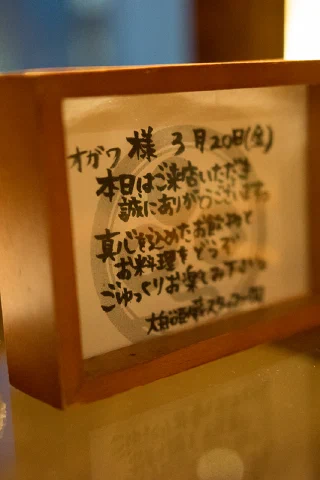 オガワ様 3月20日(金)
本日はご来店いただき
誠にありがとうございます。
真心を込めたお飲物と
お料理をどうぞ
ごゆっくりお楽しみ下さい。
スタッフ一同